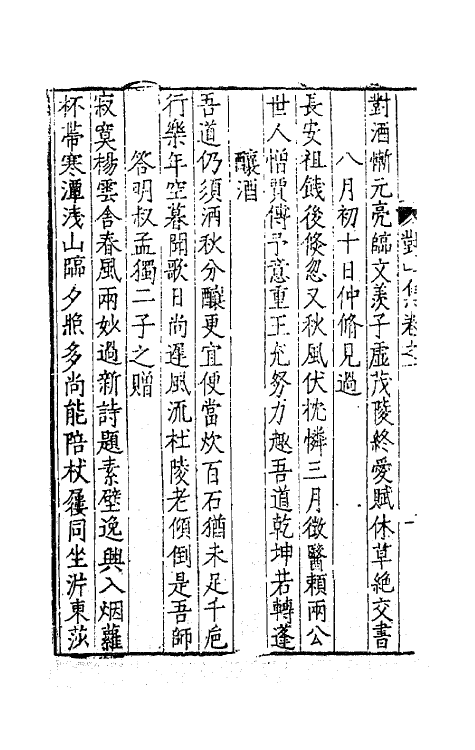 對山集卷之
對酒慚元亮臨文羨子虛茂陵終愛賦休草絶交書
八月初十日仲脩見過
長安祖餞後倏忽又秋風伏枕憐三月徴醫頼兩公
世人憎賈傅予意重王充努力趣吾道乾坤若轉蓬
釀酒
吾道仍須酒秋分釀更宜便當炊百石猶未足千巵
行樂年空暮聞歌日尚遲風流杜陵老傾倒是吾師
答明叔孟獨二子之贈
寂寞楊雲舍春風兩妙過新詩題素壁逸興入烟蘿
杯帶寒潭淺山臨夕照多尚能陪杖屨同坐沜東莎